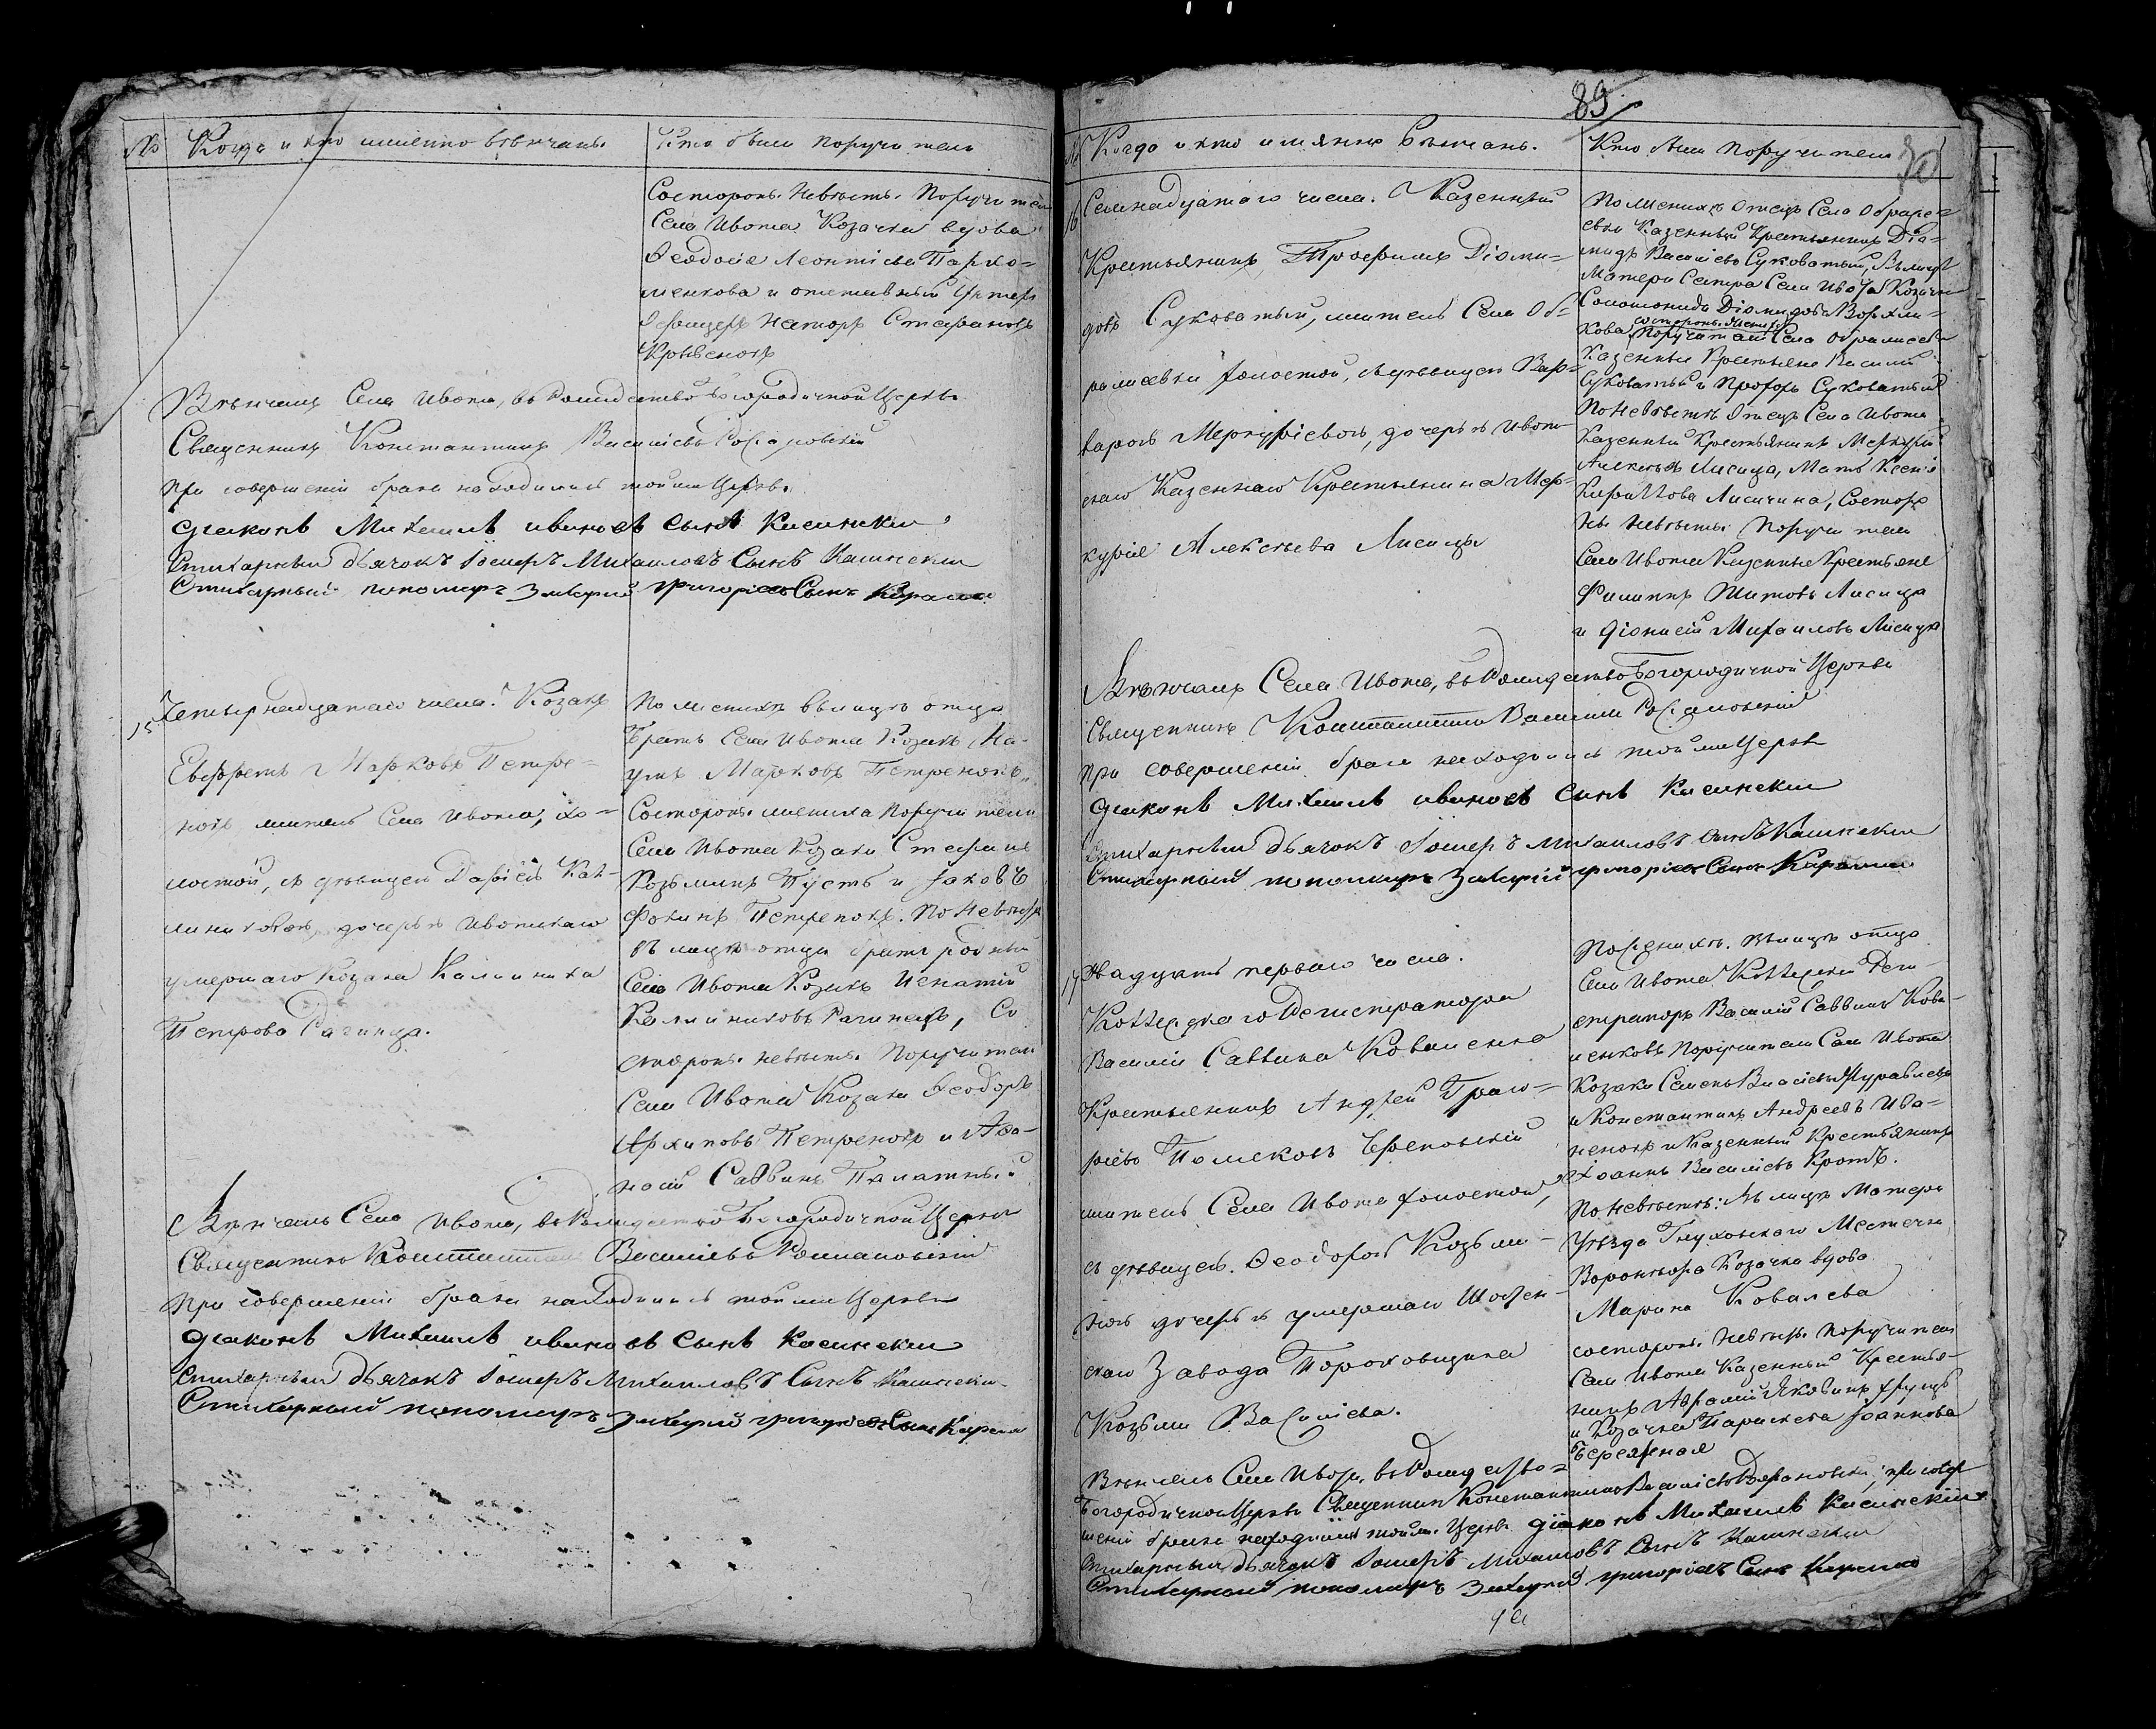 № Когда и кто именно вѣнчанъ.
Кто были поручители
Состороны невѣсты. Поручители
Села Ивота Козачка вдова
Ѳеодосія Леонтіева Пархо=
менкова и отставный Унтеръ
Офицеръ Стефановъ
Вѣнчалъ Села Ивота, въ Рождество Богородичной Церкви
Священникъ Константинъ Василіевъ
При совершеніи брака находились тойже Церкви
діаконъ Михаилъ ивановъ сынъ
Стихарный дьячокъ Михаиловъ Сынъ
Стихарный пономаръ Захарий григориевъ Сынъ
15 Четырнадцатаго числа. Козакъ
Марковъ Петре=
нокъ житель Села Ивота, хо=
лостой, съ дѣвицею Даріею Кал-
линиковою, дочерью Ивотскаго
умершаго Козака Каллиника
Петрова Рагинца.
По женихѣ вмѣсто отца
Братъ Села Ивота Козакъ На-
умъ Марковъ Петренокъ,
Состороны жениха Поручители
Села Ивота Козаки Стефанъ
Козьминъ Пустъ и Іаковъ
Фокинъ Петренокъ. По невѣстѣ
въ мѣсто отца братъ родный
Села Ивота Козакъ Игнатій
Каллиниковъ Рагинецъ, Со
стороны невѣсты. Поручители
Села Ивота Козаки Ѳеодоръ
Архиповъ Петренокъ и Аѳа-
насій Саввинъ Палатный
Вѣнчалъ Села Ивота, въ Рождество Богородичной Церкви
Священникъ Константинъ Василіевъ
При совершеніи брака находились тойже Церкви
діаконъ Михаилъ ивановъ сынъ
Стихарный дьячокъ Михаиловъ Сынъ
Стихарный пономаръ Захарий григориевъ Сынъ
89
Когда и кто имянно вѣнчанъ.
Кто были поручители
16 Семнадцатаго числа. Казенный
Крестьянинъ, Трофимъ Діоми-
довъ Суковатый, житель Села Об-
ражіевки холостой, съ дѣвицею Вар=
варою Меркуріевою, дочерью Ивот-
скаго Казеннаго Крестьянина Мер=
курія Алексѣева Лисицы
По женихѣ Отецъ Села Ображі=
евки Казенный Крестьянинъ Діо-
мидъ Василіевъ Суковатый, Вмѣсто
Матери Сестра Села Ивота Козачка
Соломонида Діомидова
кова, состороны жениха Поручители Села Ображіевки
Казенные Крестьяне Василій
Суковатый и Прохоръ Суковатый
По невѣстѣ Отецъ Села Ивота
Казенный Крестьянинъ Меркурій
Алексѣевъ Лисица, Мать Ксенія
Кириллова Лисичина, Состоро
ны невѣсты. Поручители
Села Ивота Казенные Крестьяне
Филиппъ Титовъ Лисица
и Діонисій Михаиловъ Лисица
Вѣнчалъ Села Ивота, въ Рождество Богородичной Церкви
Священникъ Константинъ Василіевъ
При совершеніи брака находились тойже Церкви
діаконъ Михаилъ ивановъ сынъ
Стихарный дьячокъ Михаиловъ Сынъ
Стихарный пономаръ Захарий григориевъ Сынъ
17 Двадцать перваго числа.
Коллежскаго Регистратора
Василія Саввина Коваленка
Крестьянинъ Андрей Григо=
ріевъ
житель Села Ивота холостой,
съ дѣвицею. Ѳеодорою Козьми-
ною дочерью умершаго Шостен-
скаго Завода Пороховщика
Козьмы Василіева.
По женихѣ. Вмѣсто отца
Села Ивота Коллежский Реги-
страторъ Василій Саввинъ Кова-
ленковъ Поручители Села Ивота
Козаки Семенъ Власіевъ Журавлевъ
и Константинъ Андреевъ Ива-
ненокъ и Казенный Крестьянинъ
Іоаннъ Василіевъ Кротъ.
По невѣстѣ: Вмѣсто Матери
Уѣзда Глуховскаго Местечка
Воронежа Козачка вдова
Марина Ковалева
состороны невѣсты. Поручители
Села Ивота Казенный Крестья-
нинъ Аврамій Яковинъ
и Козачка Параскева Іоаннова
Бережная
Вѣнчалъ Села Ивота, въ Рождество=
Богородичной Церкви Священникъ Константинъ Василіевъ при совер
шеніи брака находились тойже Церкви діаконъ Михаилъ
Стихарный дьячокъ Михаиловъ Сынъ
Стихарный пономаръ Захарий григориевъ Сынъ